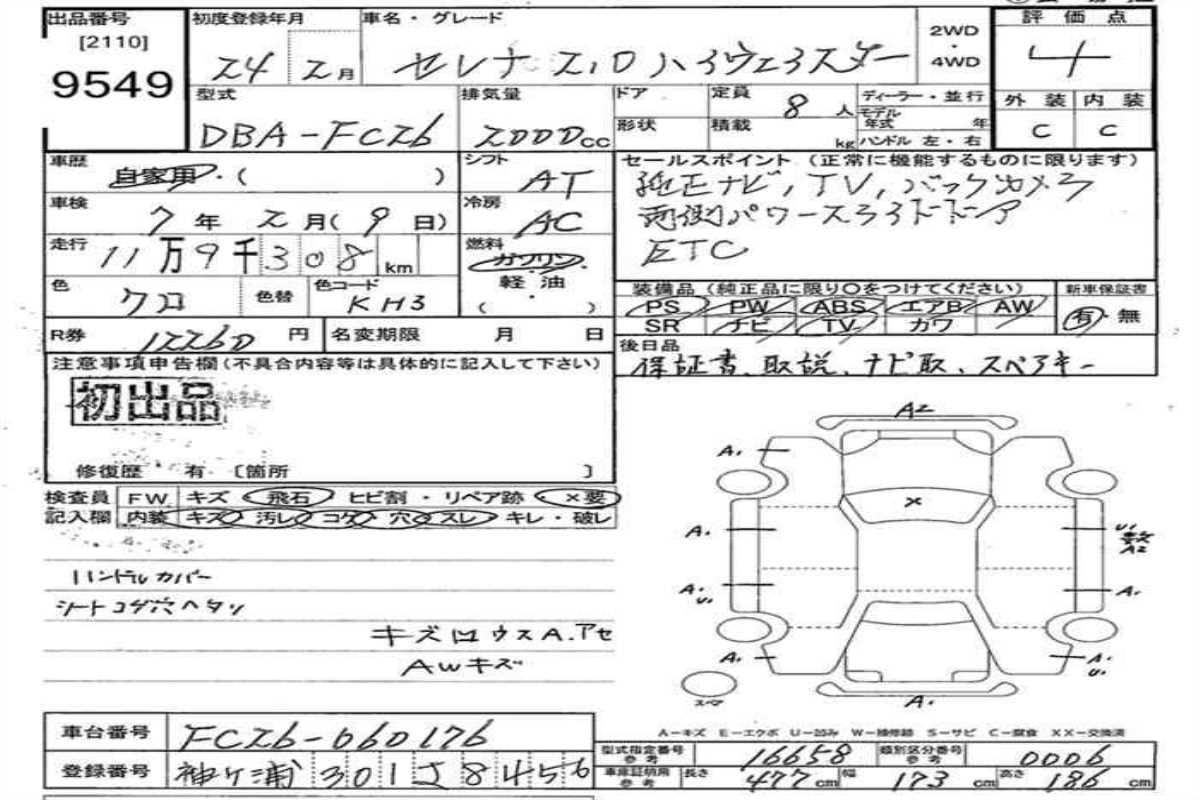 出品番号 初度登録年月 車名・グレード 評価点
[2110] 24 2月 セレナ 2.0 ハイウェイスター 2WD・4WD 4
9549
型式 排気量 ドア 定員 8人 ディーラー・並行 外装 内装
DBA-FC26 2000cc 形状 積載 kg モデル年式 年 C C
ハンドル 左・右
車歴 自家用・( ) シフト AT セールスポイント (正常に機能するものに限ります)
純正ナビ, TV, バックカメラ
車検 7年 2月(9日) 冷房 AC 両側パワースライドドア
走行 11万9千308km 燃料 ガソリン・軽・油 ETC
( )
色 クロ 色替 色コード KH3 装備品 (純正品に限り○をつけてください) 新車保証書
PS PW ABS エアB AW 有・無
SR ナビ TV カワ
R券 12260円 名変期限 月 日 後日品
保証書、取説、ナビ取、スペアキー
注意事項申告欄(不具合内容等は具体的に記入して下さい)
初出品
修復歴 有 〔箇所 〕
検査員 FW キズ・飛石・ヒビ割・リペア跡・×要
記入欄 内装 キズ 汚レ コゲ 穴 スレ キレ・破レ
ハンドルカバー
シートコゲ穴ヘタリ
キズ凹ウスA.アセ
AWキズ
A2
A1
×
A1 U1
A2
A1 U1 A1
A1 A1 U1
スペア A1
A-キズ E-エクボ U-凹み W-補修跡 S-サビ C-腐食 XX-交換済
車台番号 FC26-060176
型式指定番号参考 16658 類別区分番号参考 0006
登録番号 袖ヶ浦 301 さ 8456
車庫証明用参考 長さ 477cm 幅 173cm 高さ 186cm